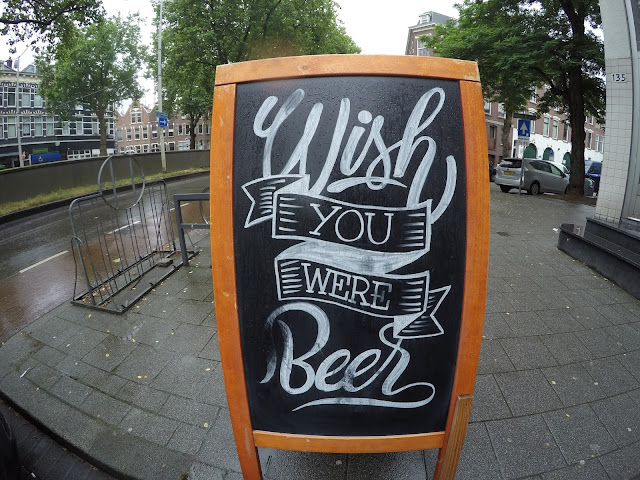 Wish
YOU
WERE
Beer
135